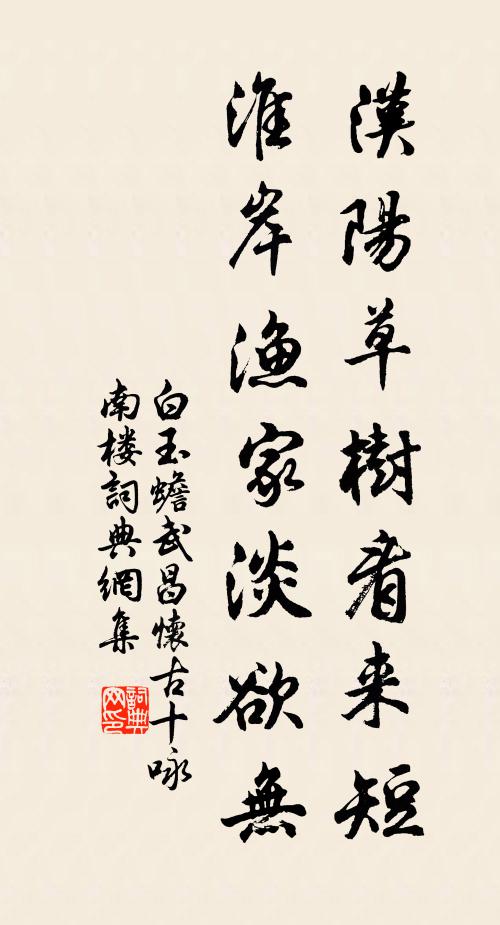 漢陽草樹看来短
淮岸漁家淡欲無
白玉蟾武昌懷古十咏
南楼詞典網集
詞典网印